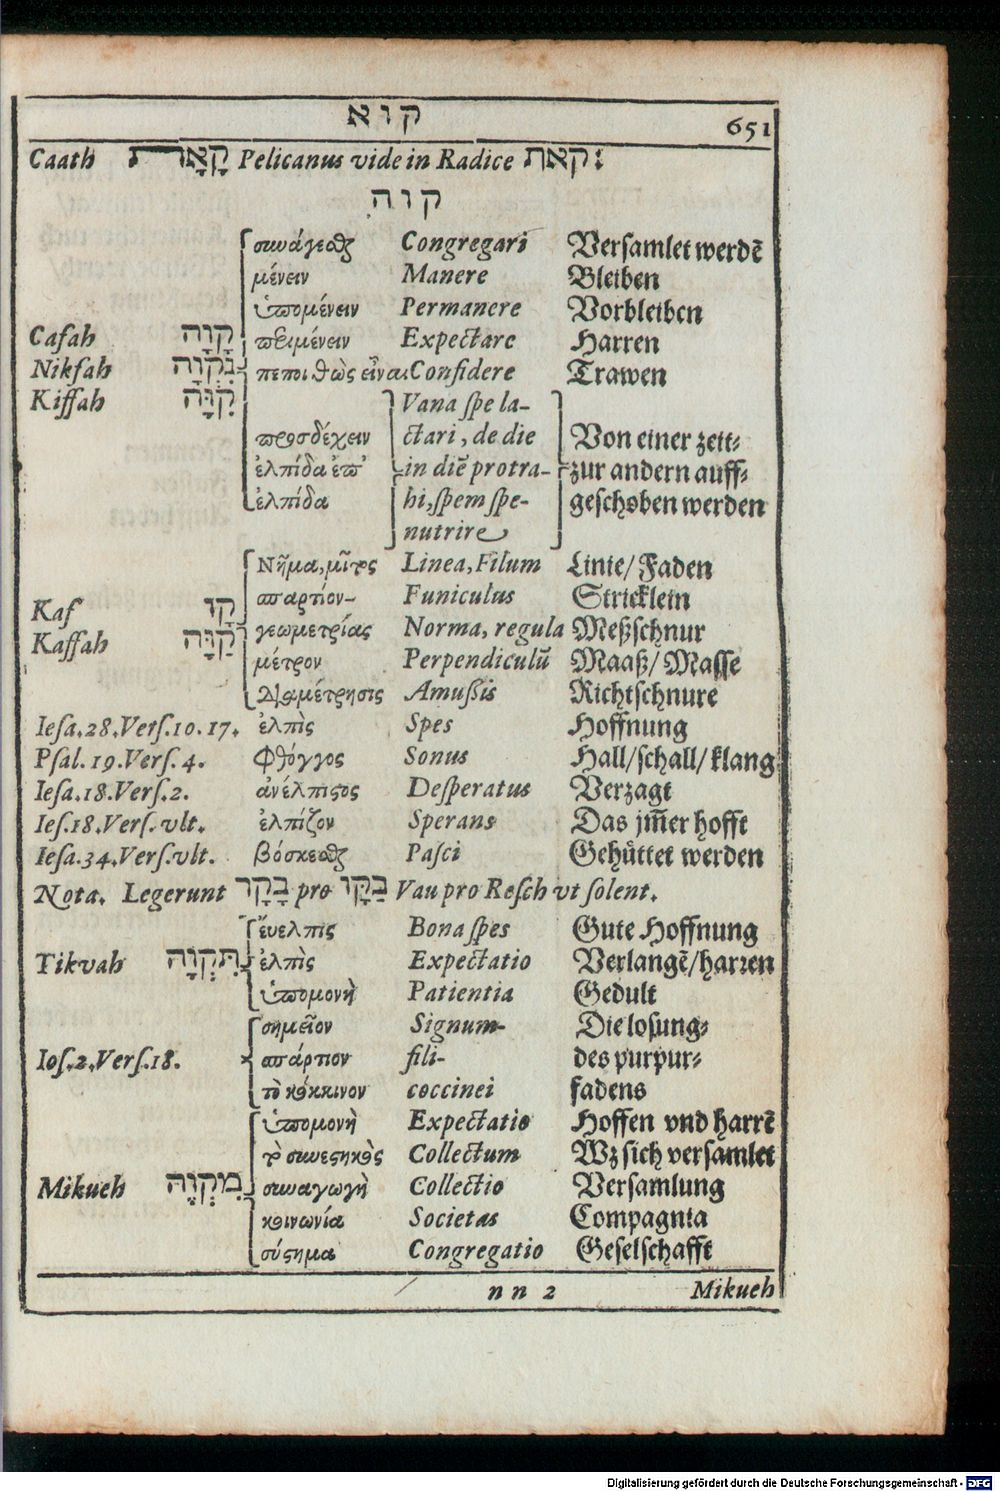 קוא
651
Caath קָאָת Pelicanus vide in Radice קאת:
קוה
συνάγεσθαι Congregari Versamlet werdē
μένειν Manere Bleiben
ὑπομένειν Permanere Vorbleiben
Cafah קָוָה περιμένειν Expectare Harren
Nikfah נִקְוָה πεποιθὼς εἶναι Confidere Trawen
Kiffah קִוָּה Vana spe la-
προσδέχειν ctari, de die Von einer zeit-
ἐλπίδα ἐπ' in diē protra- zur andern auff-
ἐλπίδα hi, spem spe- geschoben werden
nutrire
Νῆμα, μῖτος Linea, Filum Linie/ Faden
Kaf קַו σπαρτίον- Funiculus Stricklein
Kaffah קַוָּה γεωμετρίας Norma, regula Meßschnur
μέτρον Perpendiculū Maaß/ Masse
Διαμέτρησις Amußis Richtschnure
Iesa. 28. Vers. 10. 17. ἐλπὶς Spes Hoffnung
Psal. 19. Vers. 4. Φθόγγος Sonus Hall/ schall/ klang
Iesa. 18. Vers. 2. ἀνέλπιστος Desperatus Verzagt
Ies. 18. Vers. vlt. ἐλπίζον Sperans Das jm̄er hofft
Iesa. 34. Vers. vlt. βόσκεσθαι Pasci Gehüttet werden
Nota. Legerunt בָּקָר pro בַּקָּו Vau pro Resch vt solent.
ἔυελπις Bona spes Gute Hoffnung
Tikvah תִּקְוָה ἐλπὶς Expectatio Verlangē/ harren
ὑπομονὴ Patientia Gedult
σημεῖον Signum- Die losung-
Ios. 2. Vers. 18. σπάρτιον fili- des purpur-
τὸ κόκκινον coccinei fadens
ὑπομονὴ Expectatio Hoffen vnd harrē
τὸ συνεστηκὸς Collectum Wz sich versamlet
Mikueh מִקְוֶה συναγωγὴ Collectio Versamlung
κοινωνία Societas Compagnia
σύστημα Congregatio Geselschafft
nn 2 Mikueh
Digitalisierung gefördert durch die Deutsche Forschungsgemeinschaft - DFG